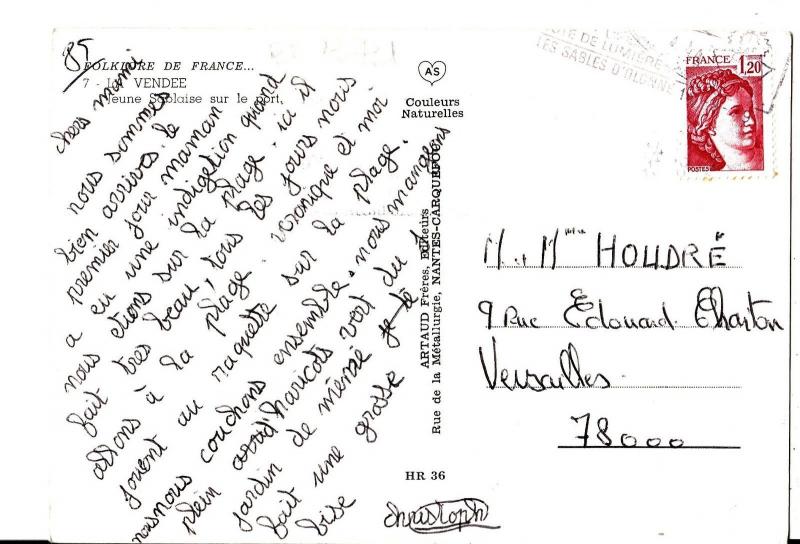 85
FOLKLORE DE FRANCE...
7 - LA VENDEE
Jeune Sablaise sur le port.
AS
Couleurs
Naturelles
CÔTE DE LUMIÈRE
LES SABLES D'OLONNE
FRANCE 1,20
POSTES
chers mami
nous sommes
bien arrivés. le
premier jour maman
a eu une indigetion quand
nous étions sur la plage. ici il
fait très beau, tous les jours nous
allons à la plage. veronique et moi
jouent au raquette sur la plage.
nous nous couchons ensemble. nous mangeons
plein d'haricots vert du
jardin de mémé je te
fait une grosse
bise
christoph
ARTAUD Frères, Editeurs
Rue de la Métallurgie, NANTES-CARQUEFOU
HR 36
M. Mme HOUDRÉ
9 Rue Edouard Charton
Versailles
78000